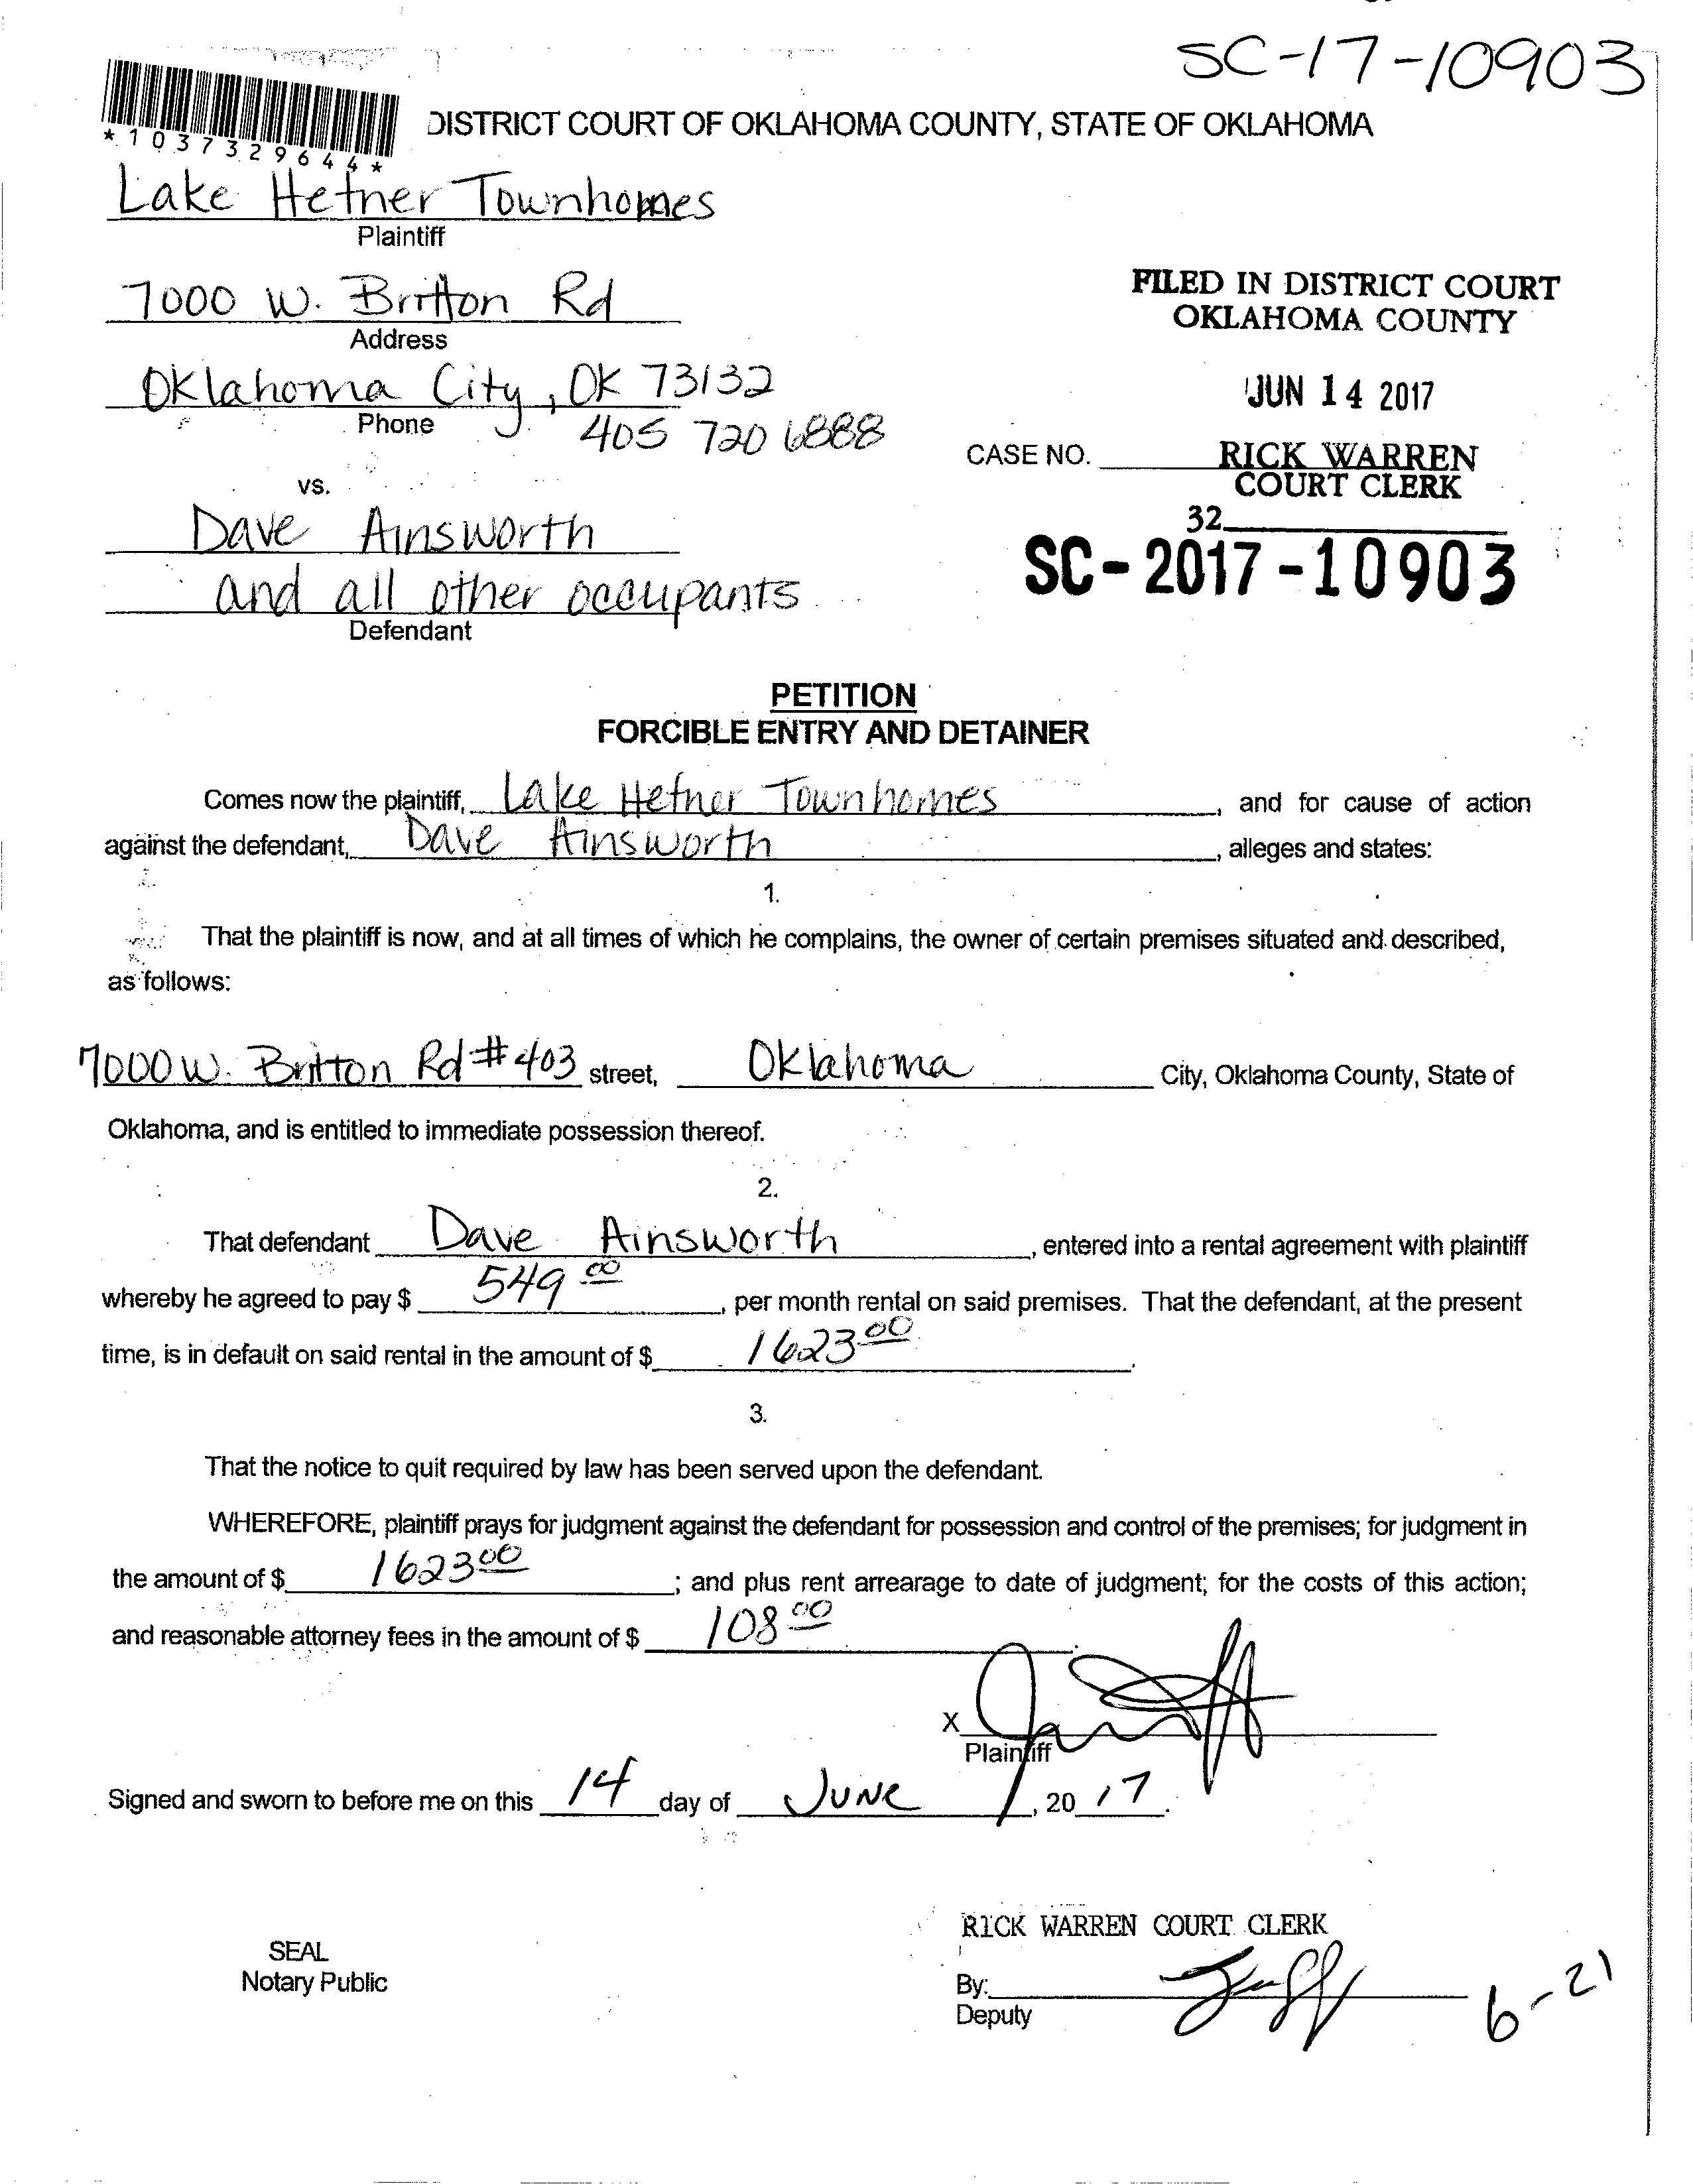 SC-17-10903
*1037329644*
DISTRICT COURT OF OKLAHOMA COUNTY, STATE OF OKLAHOMA
Lake Hefner Townhomes
Plaintiff
7000 W. Britton Rd
Address
FILED IN DISTRICT COURT
OKLAHOMA COUNTY
Oklahoma City, OK 73132
JUN 14 2017
Phone
405 720 6888
CASE NO.
RICK WARREN
COURT CLERK
vs.
32
Dave Ainsworth
SC-2017-10903
and all other occupants
Defendant
PETITION
FORCIBLE ENTRY AND DETAINER
Comes now the plaintiff, Lake Hefner Townhomes, and for cause of action
against the defendant, Dave Ainsworth, alleges and states:
1.
That the plaintiff is now, and at all times of which he complains, the owner of certain premises situated and described,
as follows:
7000 W. Britton Rd #403 street, Oklahoma City, Oklahoma County, State of
Oklahoma, and is entitled to immediate possession thereof.
2.
That defendant Dave Ainsworth, entered into a rental agreement with plaintiff
whereby he agreed to pay $ 549 00, per month rental on said premises. That the defendant, at the present
time, is in default on said rental in the amount of $ 1623 00.
3.
That the notice to quit required by law has been served upon the defendant.
WHEREFORE, plaintiff prays for judgment against the defendant for possession and control of the premises; for judgment in
the amount of $ 1623 00; and plus rent arrearage to date of judgment; for the costs of this action;
and reasonable attorney fees in the amount of $ 108 00.
X
Plaintiff
Signed and sworn to before me on this 14 day of JUNE, 20 17.
RICK WARREN COURT CLERK
SEAL
Notary Public
By:
Deputy
6-21